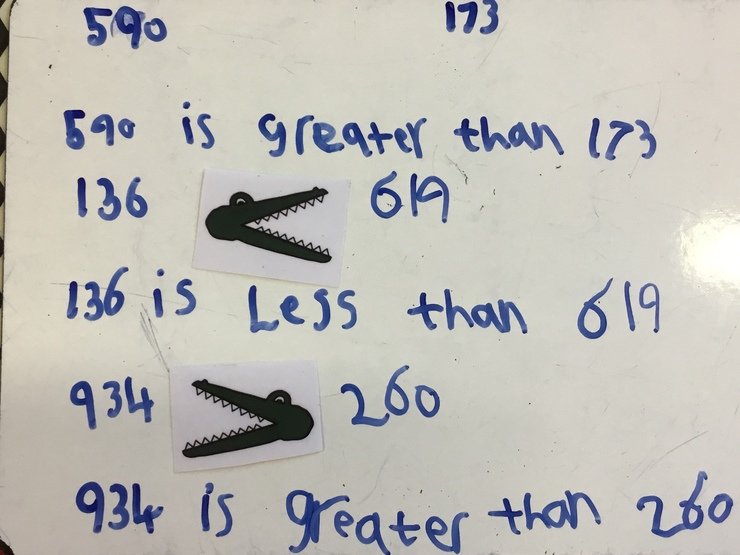 590 173
590 is greater than 173
136 619
136 is Less than 619
934 260
934 is greater than 260